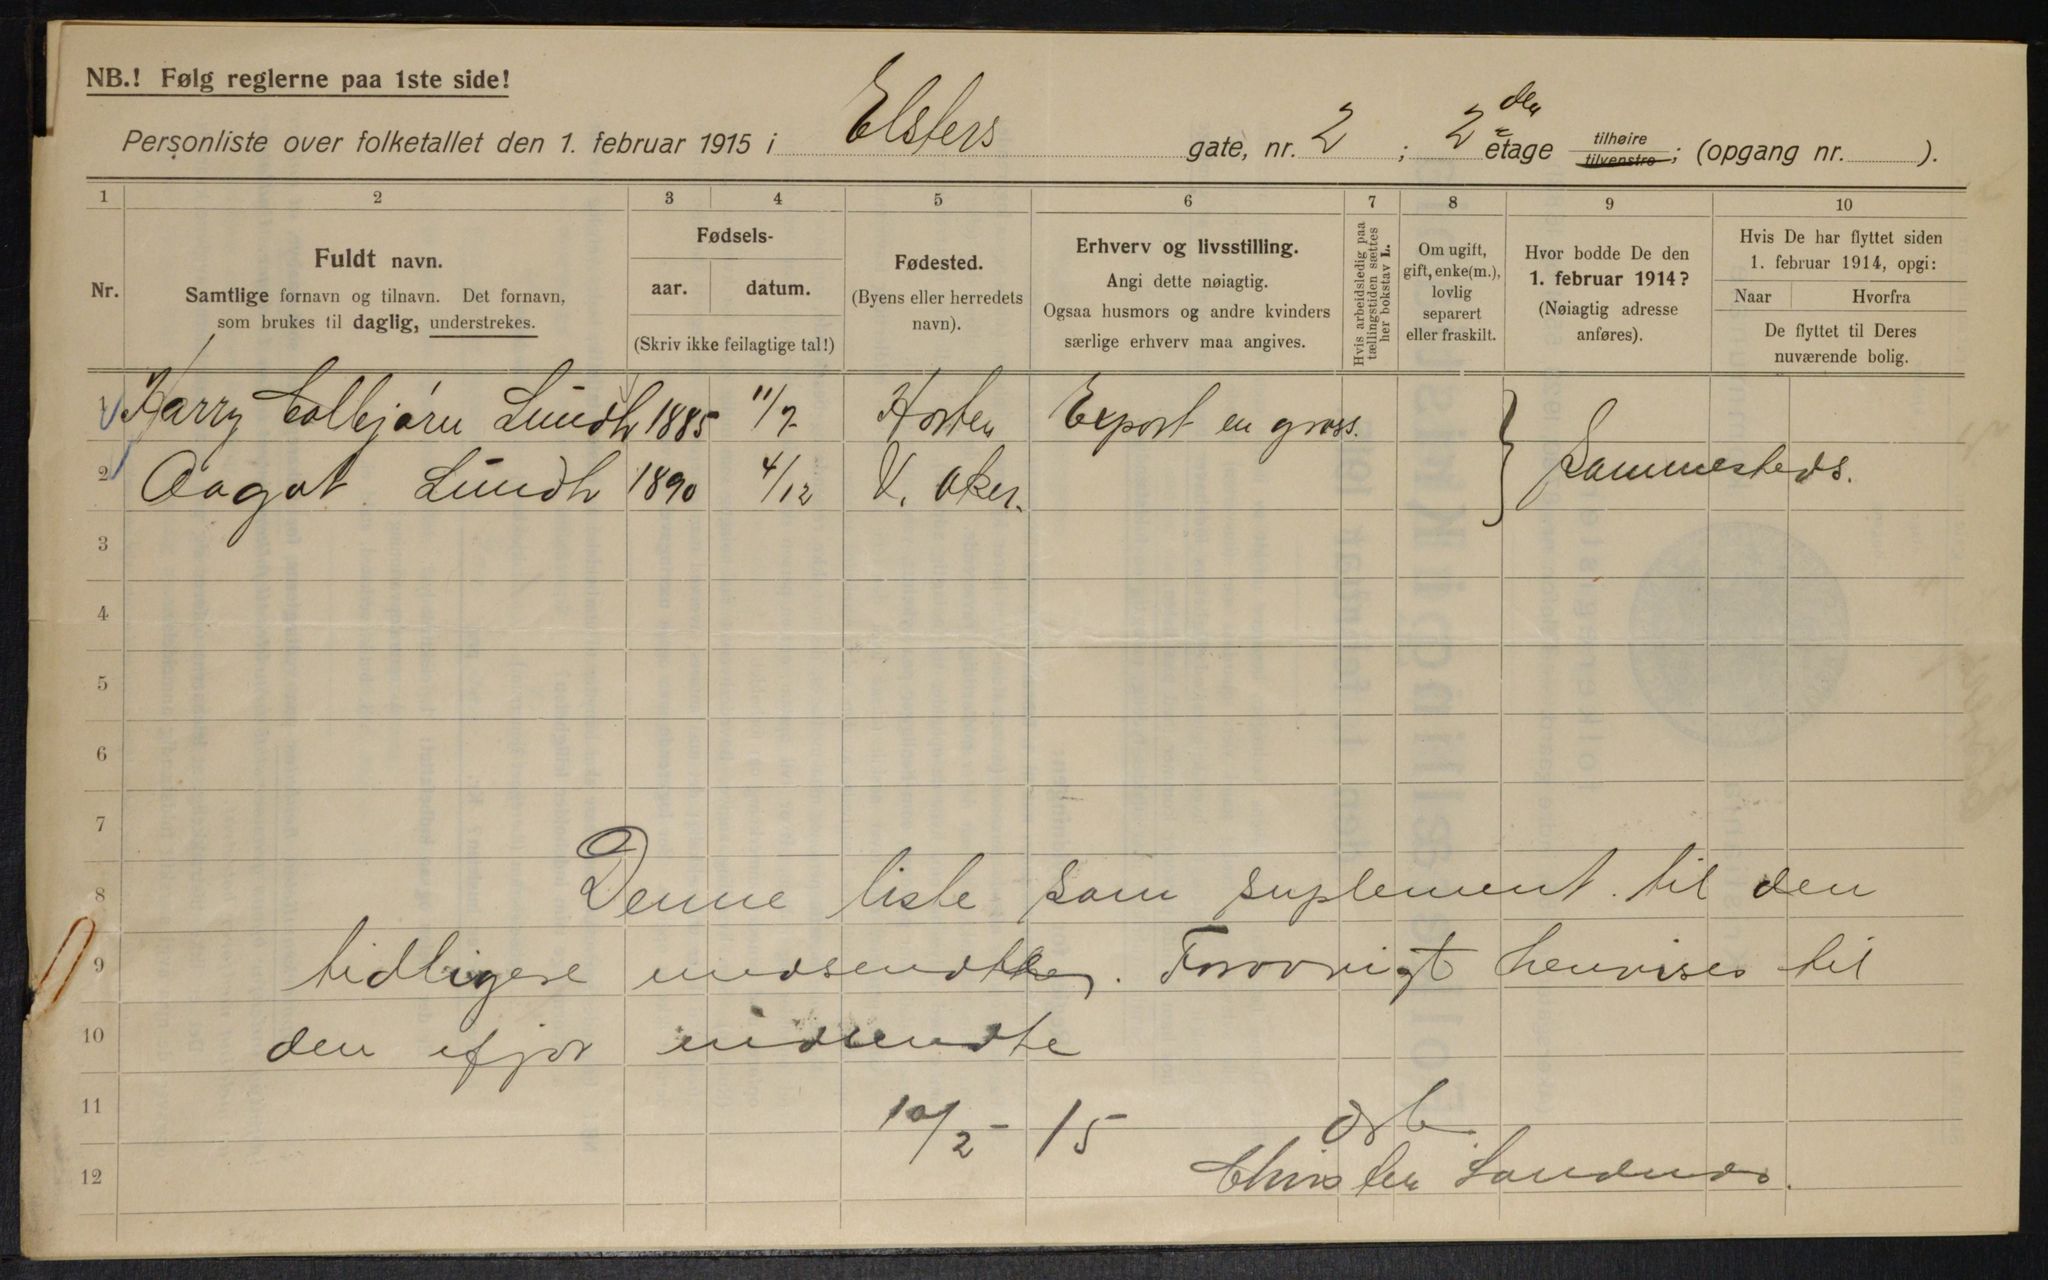 NB.! Følg reglerne paa 1ste side!
Personliste over folketallet den 1. februar 1915 i Elsters gate, nr. 2 ; 2 den etage tilhøire tilvenstre ; (opgang nr. ).
1 2 3 4 5 6 7 8 9 10
Nr.
Fuldt navn.
Samtlige fornavn og tilnavn. Det fornavn,
som brukes til daglig, understrekes.
Fødsels-
aar. datum.
(Skriv ikke feilagtige tal!)
Fødested.
(Byens eller herredets
navn).
Erhverv og livsstilling.
Angi dette nøiagtig.
Ogsaa husmors og andre kvinders
særlige erhverv maa angives.
Hvis arbeidsledig paa
tællingstiden sættes
her bokstav L.
Om ugift,
gift, enke(m.),
lovlig
separert
eller fraskilt.
Hvor bodde De den
1. februar 1914?
(Nøiagtig adresse
anføres).
Hvis De har flyttet siden
1. februar 1914, opgi:
Naar Hvorfra
De flyttet til Deres
nuværende bolig.
1 Harry Colbjørn Lundh 1885 11/7 Horten Export en gross.
2 Aagot Lundh 1890 4/12 V. Aker. Sammesteds.
3
4
5
6
7
8 Denne liste som suplement til den
9 tidligere indsendte. Forøvrigt henvises til
10 den ifjor indsendte
11 10/2 - 15
12 Christen